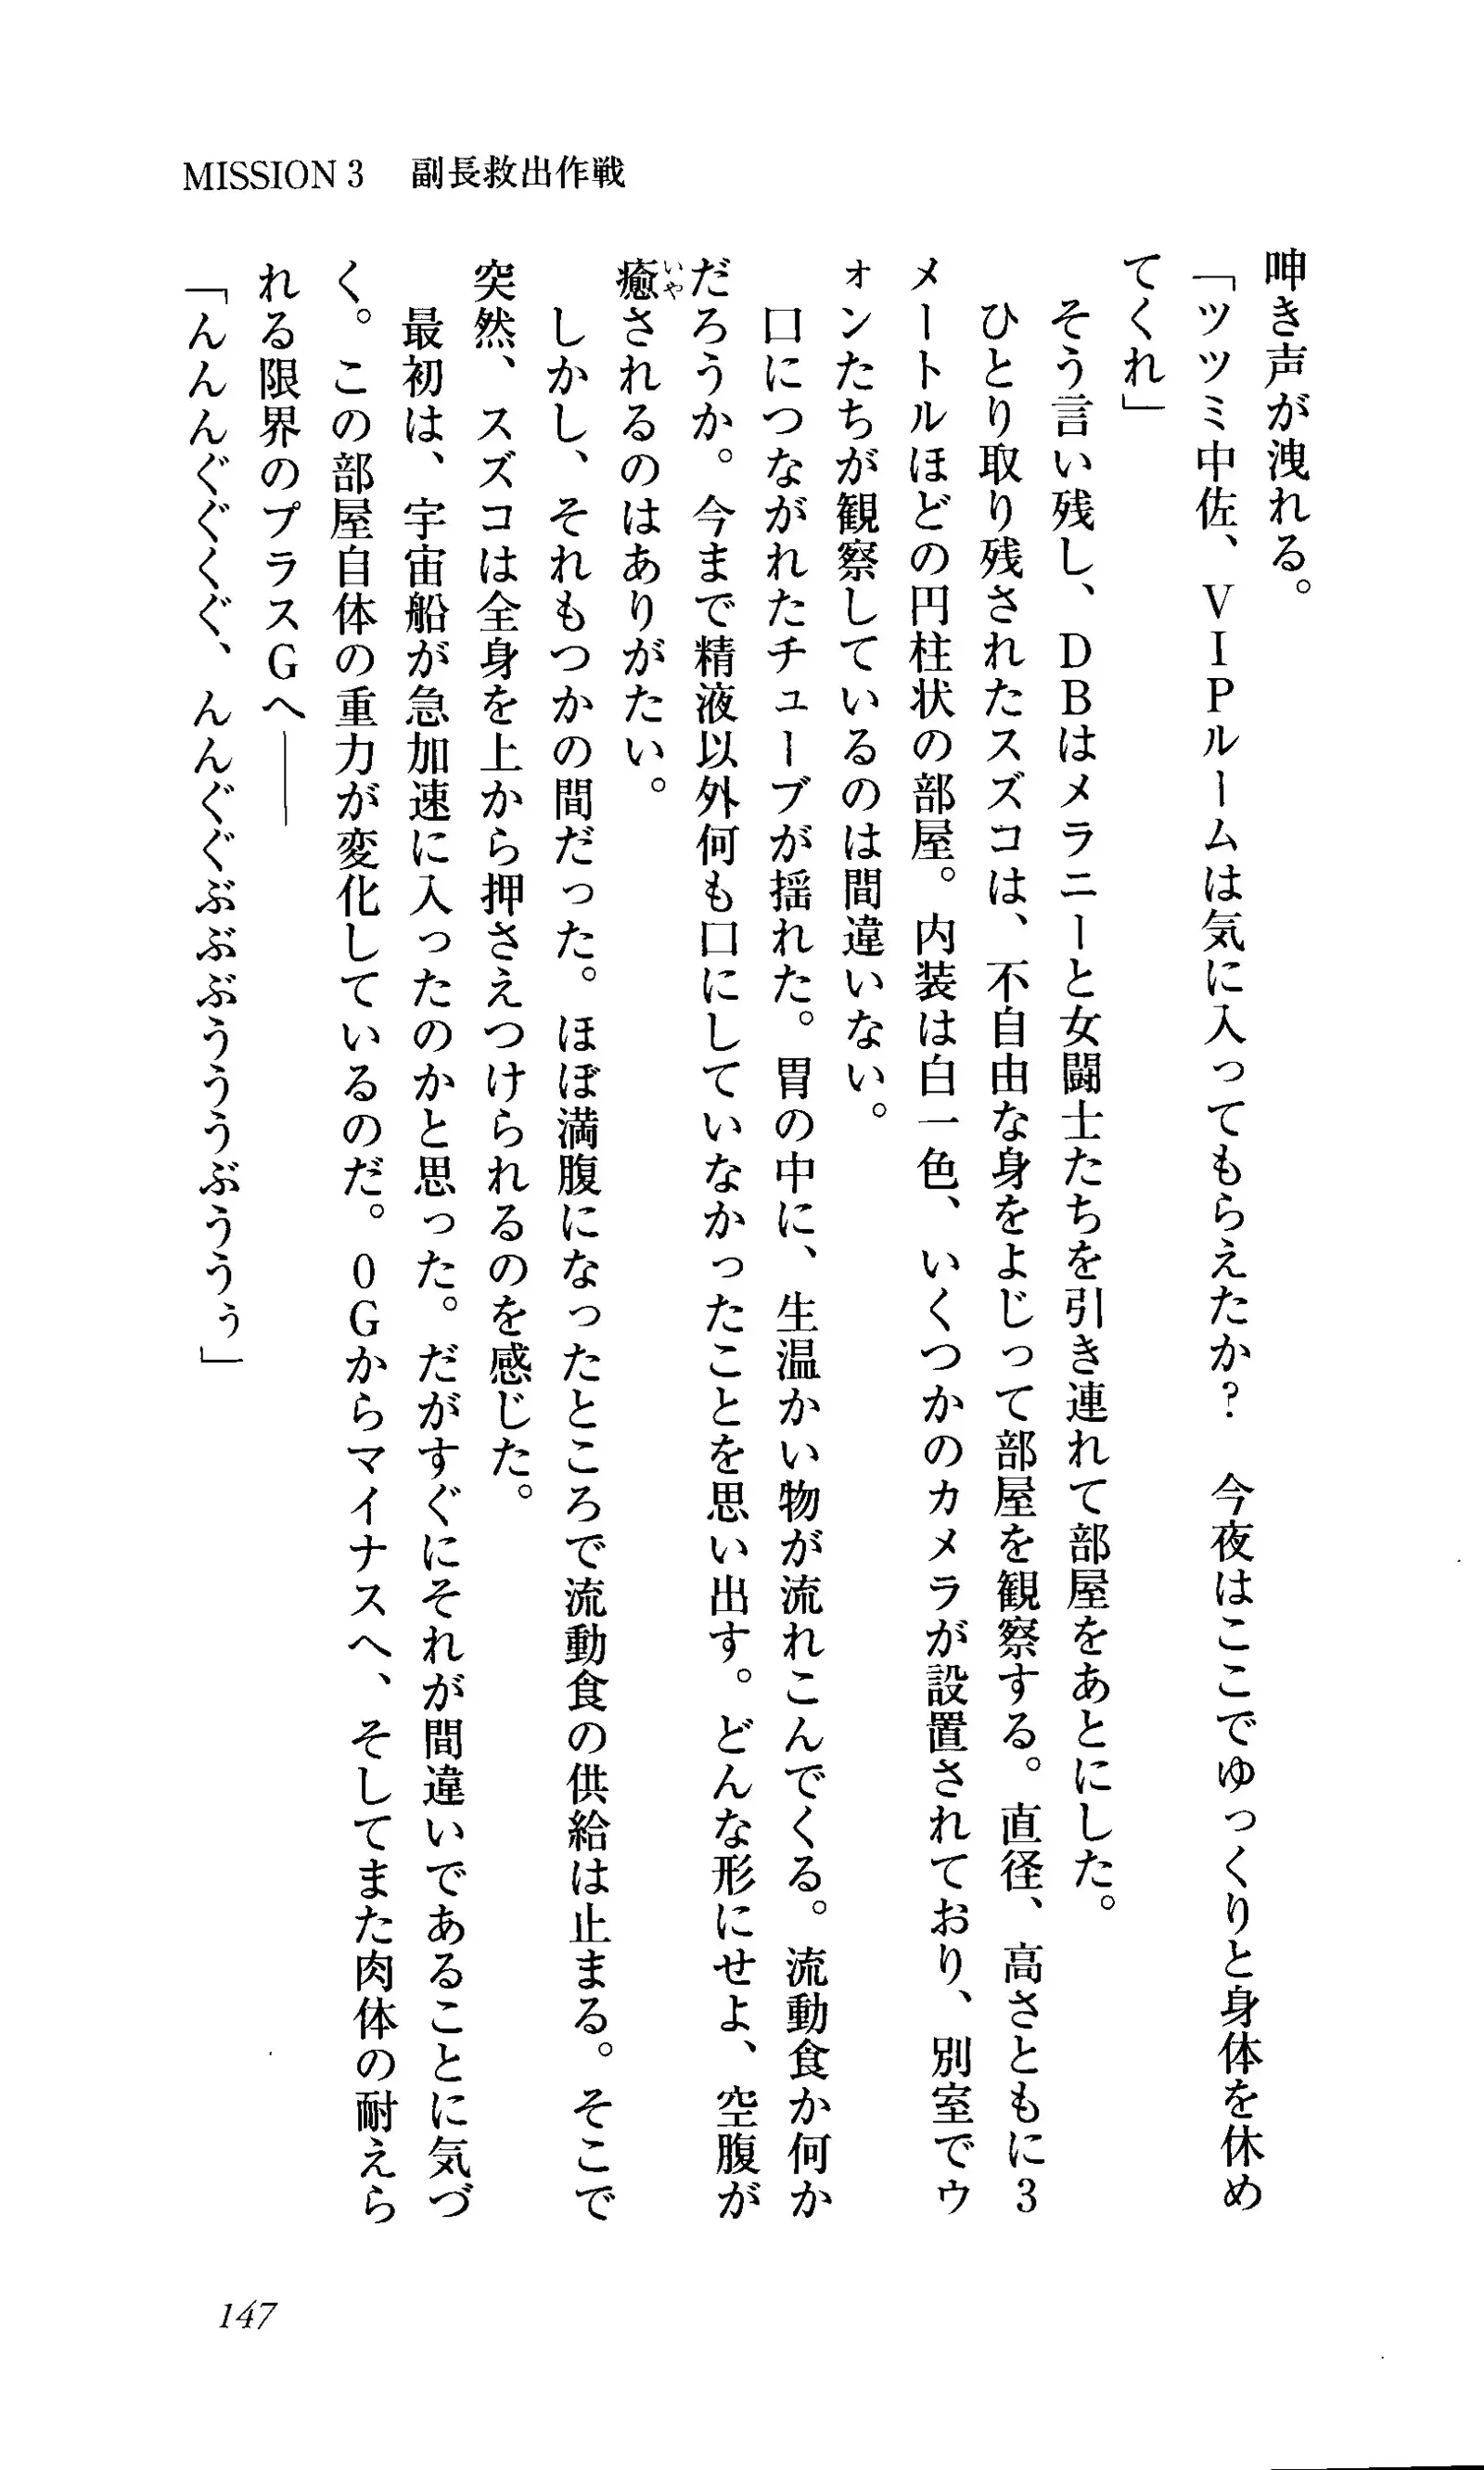 MISSION 3　副長救出作戦
呻き声が洩れる。
「ツツミ中佐、ＶＩＰルームは気に入ってもらえたか？　今夜はここでゆっくりと身体を休め
てくれ」
　そう言い残し、ＤＢはメラニーと女闘士たちを引き連れて部屋をあとにした。
　ひとり取り残されたスズコは、不自由な身をよじって部屋を観察する。直径、高さともに３
メートルほどの円柱状の部屋。内装は白一色、いくつかのカメラが設置されており、別室でウ
ォンたちが観察しているのは間違いない。
　口につながれたチューブが揺れた。胃の中に、生温かい物が流れこんでくる。流動食か何か
だろうか。今まで精液以外何も口にしていなかったことを思い出す。どんな形にせよ、空腹が
癒いやされるのはありがたい。
　しかし、それもつかの間だった。ほぼ満腹になったところで流動食の供給は止まる。そこで
突然、スズコは全身を上から押さえつけられるのを感じた。
　最初は、宇宙船が急加速に入ったのかと思った。だがすぐにそれが間違いであることに気づ
く。この部屋自体の重力が変化しているのだ。０Ｇからマイナスへ、そしてまた肉体の耐えら
れる限界のプラスＧへ――
「んんんぐぐくぐ、んんぐぐぶぶぶうううぶううぅ」
147